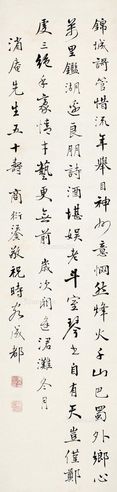 錦城謌管惜流年舉目神州意惘然烽火千山巴蜀外鄉心
萬里鑑湖邊良朋詩酒堪娛老斗室琴書自有天豈僅鄭
虔三絕手豪情才藝更無前 歲次閼逢涒灘冬月
消庵先生五十壽 商衍鎏敬祝時客成都